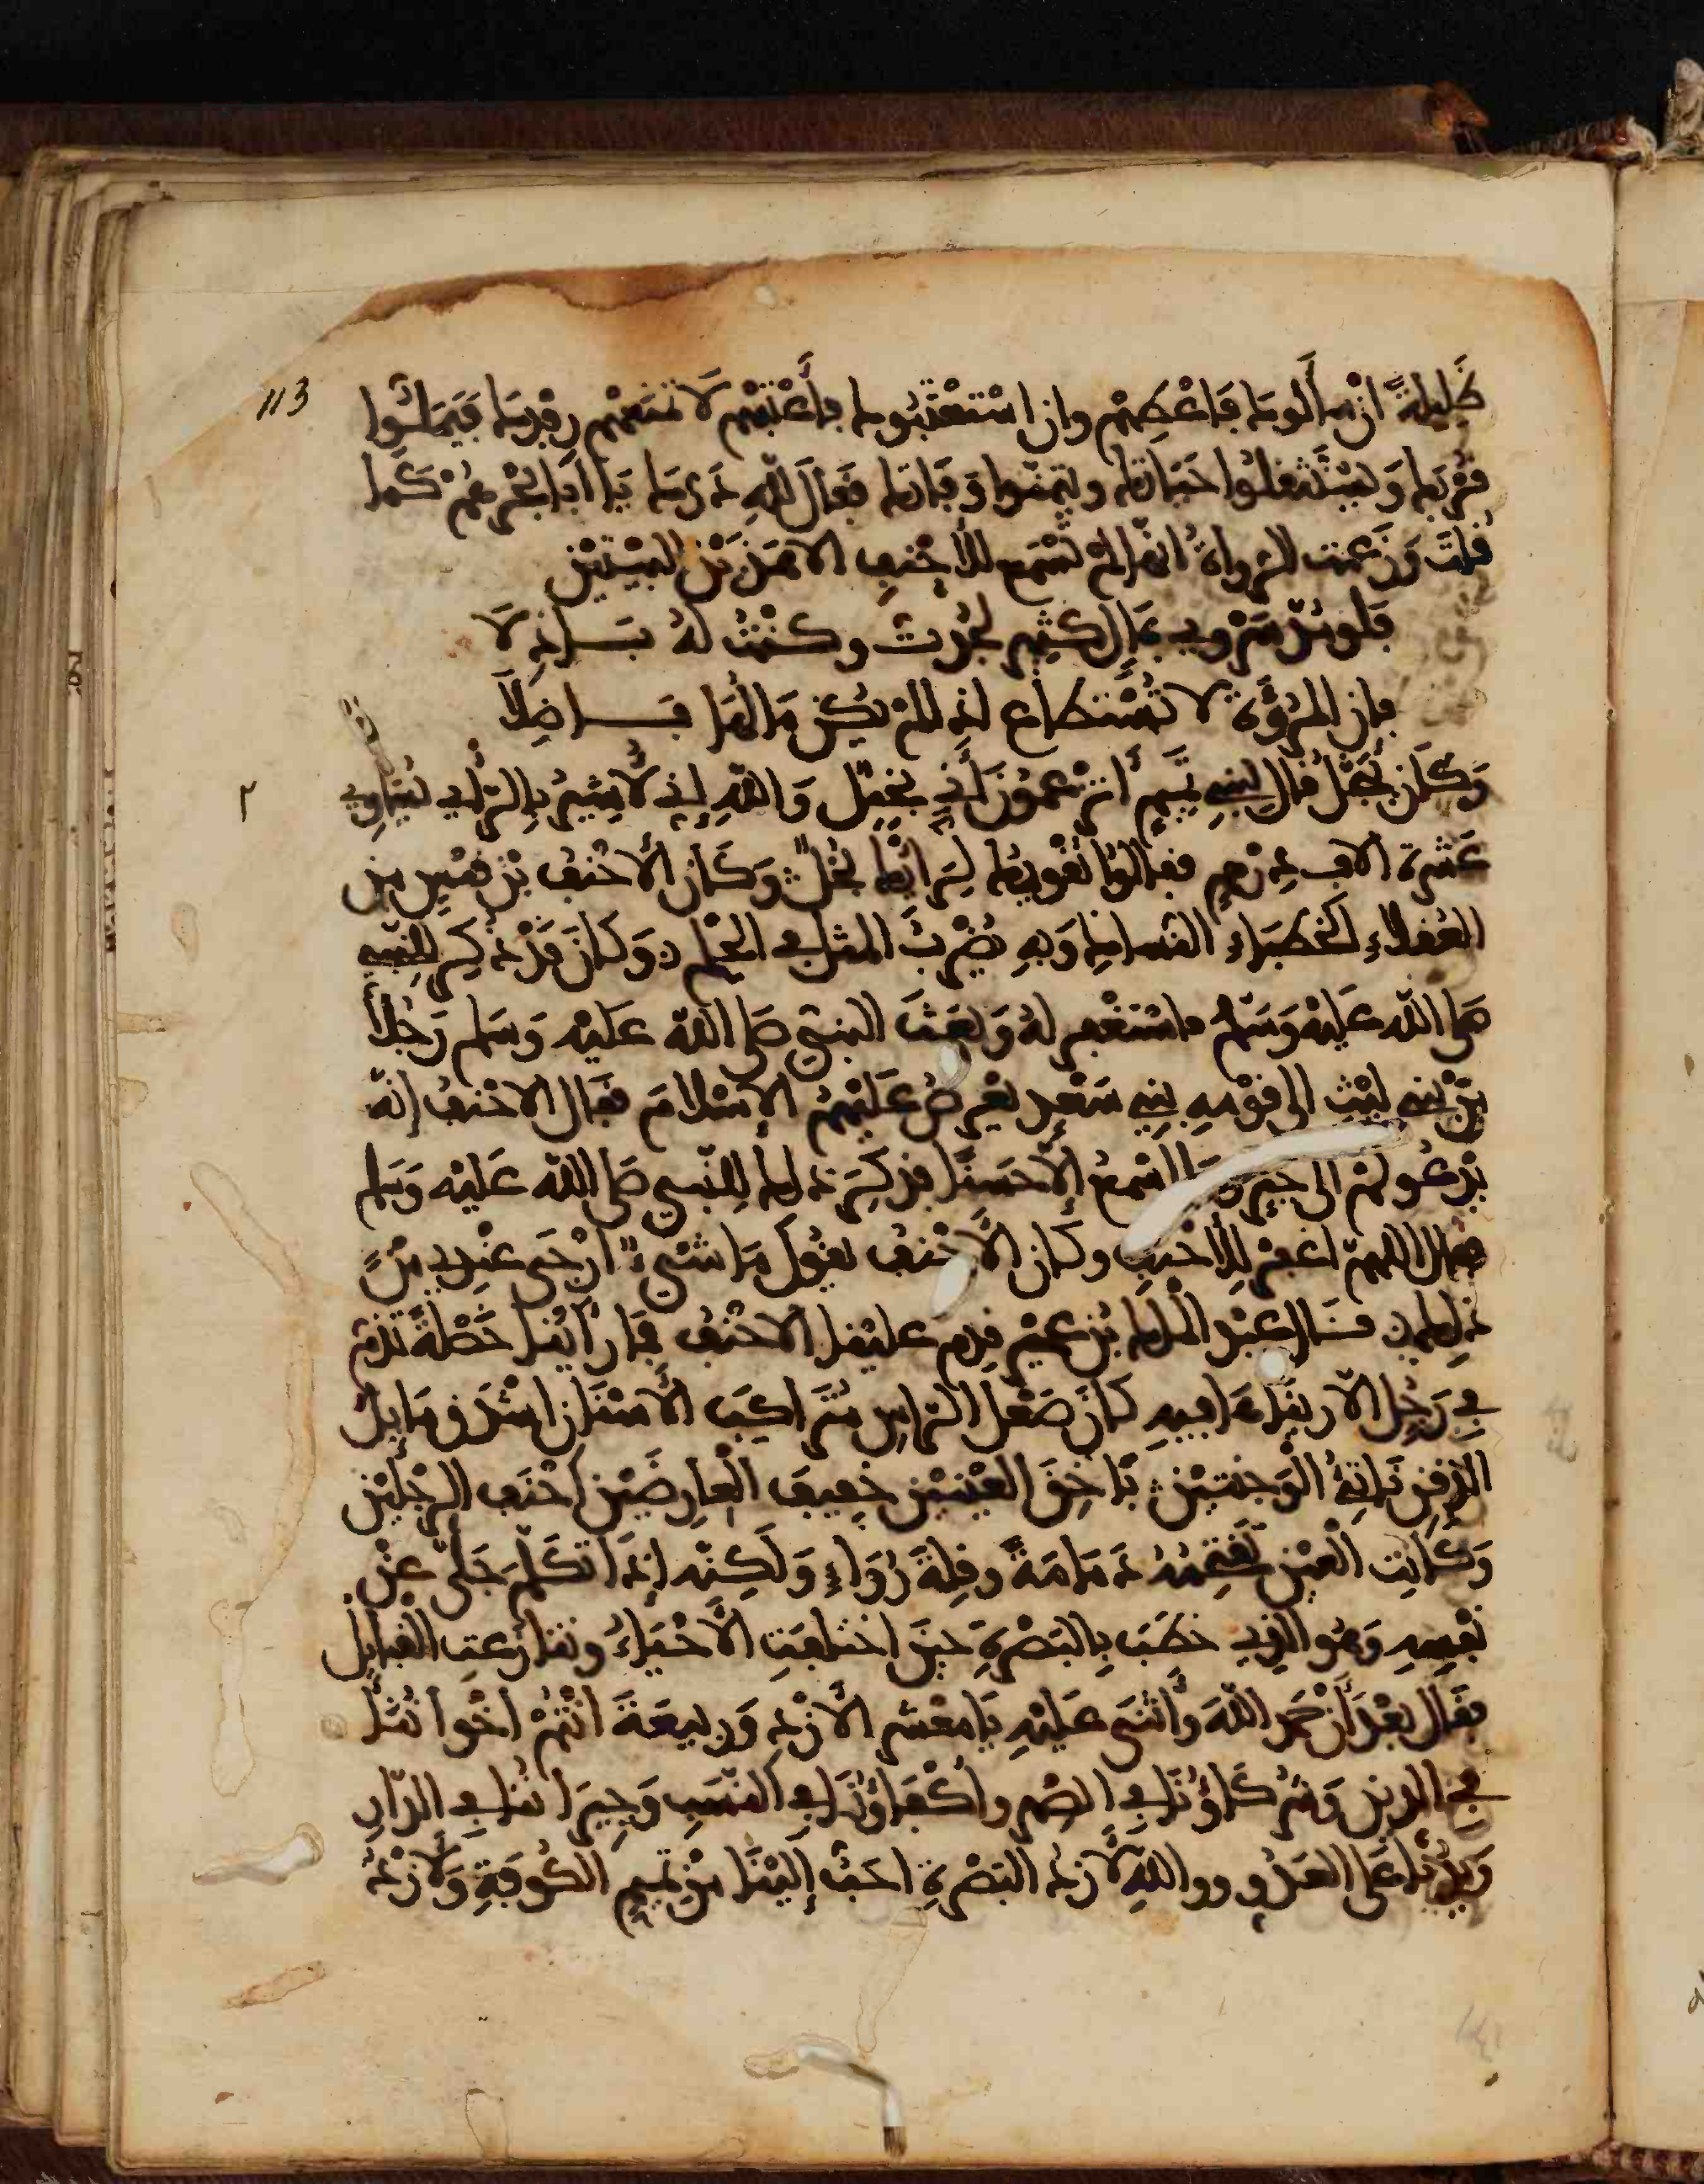 113
ظَلِيلةً ان سألوك فاعطهم وان استعتبوك فأعتبهم لا تمنعهم رفدك فيملّوا
قربك ويستثقلوا حياتك ويتمنّوا وفاتك فقال لله درّك يا ابا بحر هم كما
قلت وَزَعمت الرواة انها لم تسمع للأحنف الا هذين البيتين
فلو مُدّ سَروي بمال كثير لجُدت وكنت له باذلا
فان المروّة لا تُستطاع اذا لم يكن مالها فاضِلاَ
وَكان يُبَخّل فقال لبني تميم أتزعمون أني بخيل وَالله إني لأشير بالرأي يساوي
٢
عشرة الاف درهم فقالوا تقويمك لِرَأيك بخلٌ وَكان الأحنف بن قيس من
العُقلاءِ الخطبَاءِ النسّاك وَبهِ يُضرب المثل في الحلم وَكان قد ذكِر للنبي
صلى الله عليه وَسَلم فاستغفر له وَبَعَث النبي صَلى الله عَليْه وَسَلم رَجُلاً
مِن بَني ليْث الى قوْمهِ بني سَعْد يَعْرض عَليْهم الاسْلامَ فقال الاحنف إنّه
يدعُوكم الى خير وَما اسْمَع إلاّ حَسَنًا فذكِرَ ذلك للنّبي صَلى الله عَليْه وَسَلم
فقال اللهمّ اغفر للأحنف وكان الأحْنف يقول مَا شيْء ارْجَى عندِي مِنْ
ذلك قال عبد الملك بن عمير قدم علينا الاحنف فمَا رَأينا خَصْلةً تذم
في رَجُل الاّ رَأيناها فيهِ كان صَعْل الرأس مُتراكِبَ الأسْنان اشْدَق مَايل
الذقن نَاتئ الوَجنتين بَاخِق العَيْنين خَفِيف العَارضَيْن احْنَف الرجْلين
وَكانت العَيْن تقتحمه دَمَامَةً وقلة رُوَاءٍ وَلكِنّه إذا تكلم جَلّى عن
نفسِهِ وَهُو الذي خطب بالبَصْرةِ حين اختلفتِ الأحْيَاءُ وتنازعت القبايل
فقال بعْد أن حَمد اللهَ وَأثنى عَليْهِ يَا معْشر الأزْدِ وَرَبيعَة انتُمْ اخْواننا
في الدين وَشُركاؤنا في الصّهر وأكفاؤنا في النسَبِ وَجيرَاننا في الدّار
وَيَدُنا على العَدُو ووالله لأزد البَصْرة احَبّ إليْنا مِن تميم الكُوفَةِ وَلأزد